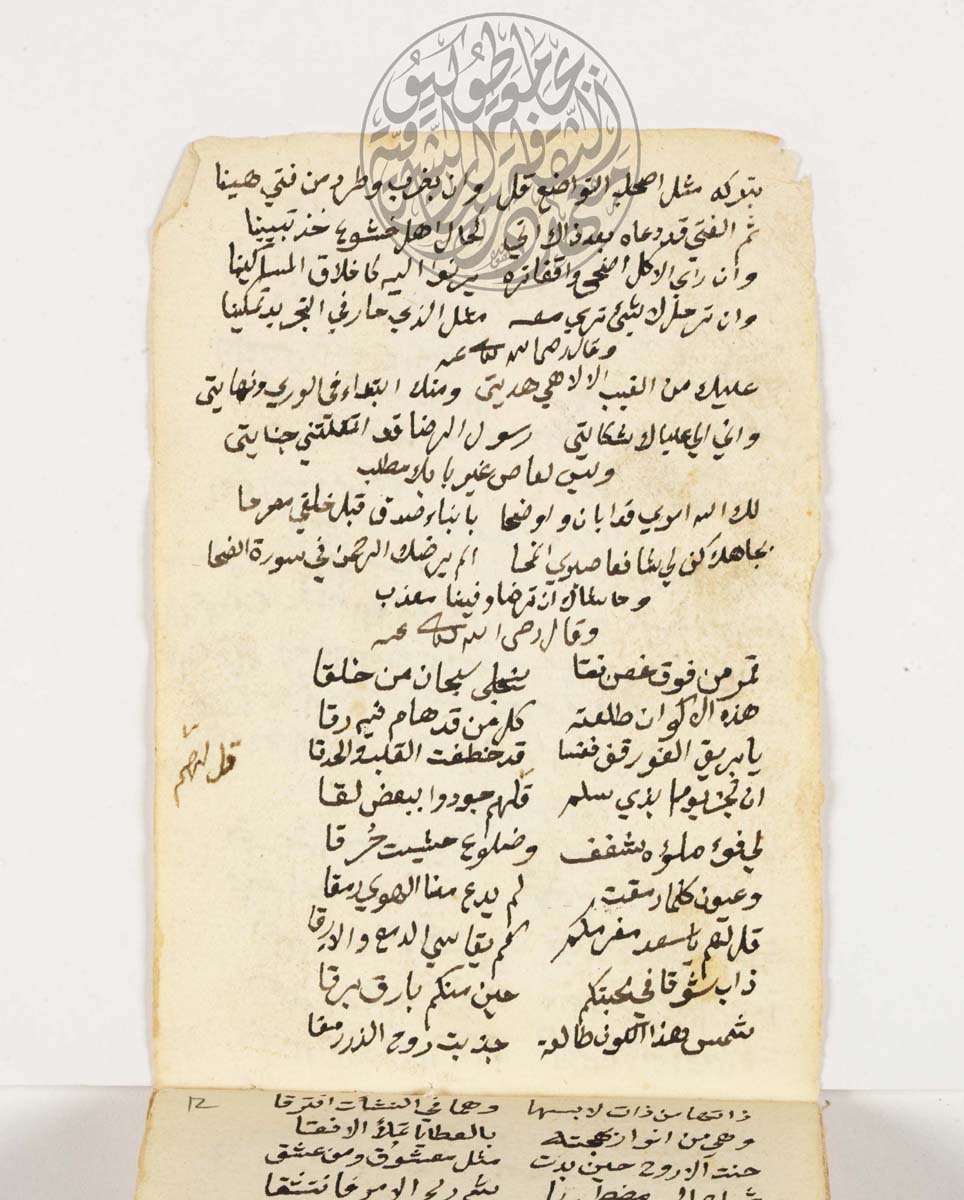 بتركه مثل اصحاب التواضع قل وان بضرب وطرد من فتي هينا
ثم الفتي قد دعاه بعد ذاك اتي كحال اهل خشوع خذ تبيينا
وان راي الاكل اضحي واقفا تره يرنوا اليه كاخلاق المساكينا
وان ترحل لا شئ تري معه مثل الذي حار في التجريد تمكينا
وقال رضي الله تعالى عنه
عليك من الغيب الالاهي هديتي ومنك ابتداء في الوري ونهايتي
واني الي علياك شكايتي رسول الرضا قد اثقلتني جنايتي
وليس لعاص غير بابك مطلب
لك الله اسري قد ابان واوضحا بانباء صدق قبل خلقي مصرحا
بجاهك كن لي شافعا صلوي انمحا الم يرضك الرحمن في سورة الضحا
وحاشاك ان ترضا وفينا معذب
وقال رضي الله تعالى عنه
قمر من فوق غصن نقا ينجلي سبحان من خلقا
هذه الاكوان طلعته كل من قد هام فيه رقا
يا بريق الغور قف نفسا قد خطفت القلب والحدقا
ان تجز يوما بذي سلم قلهم جودوا ببعض لقا
قل لهم
لي فؤ ملؤه شغف وضلوع حشيت حُرقا
وعيون كلما رمقت لم يدع منا الهوي رمقا
قل لهم يا سعد مغرمكم كم يقاسي الدمع والارقا
ذاب شوقا في محبتكم حين منكم بارق برقا
شمس هذا الكون طالعة جذبت روح الذي رمقا
١٢
ذاتها من ذات لابسها وهما في النشات افترقا
وهي من انوار بهجته بالعطايا تملأ الافقا
حنت الاروح حين بدت مثل معشوق ومن عشقا